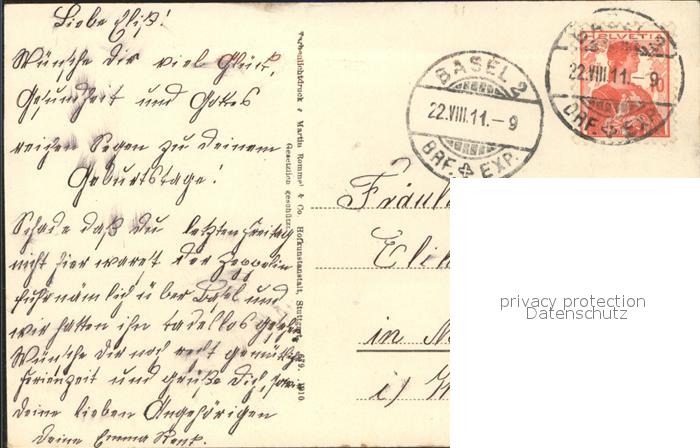 Liebe Eliß!
Wünsche dir viel Glück,
Gesundheit und Gottes
reichen Segen zu deinem
Geburtstage!
Schade daß du letzten Freitag
nicht hier warst der Zeppelin
fuhr nämlich über Basel und
wir hatten ihn tadellos gesehen
Wünsche dir noch recht gemütliche
Ferienzeit und grüße dich, sowie
deine lieben Angehörigen
Deine Emma
Farbenlichtdruck v. Martin Rommel & Co. Hofkunstanstalt, Stuttgart 1910
Gesetzlich geschützt
BASEL 2
22.VIII.11.–9
BRF. EXP.
HELVETIA
10
BASEL 2
22.VIII.11.–9
BRF. EXP.
Fräul
Eli
in
privacy protection
Datenschutz